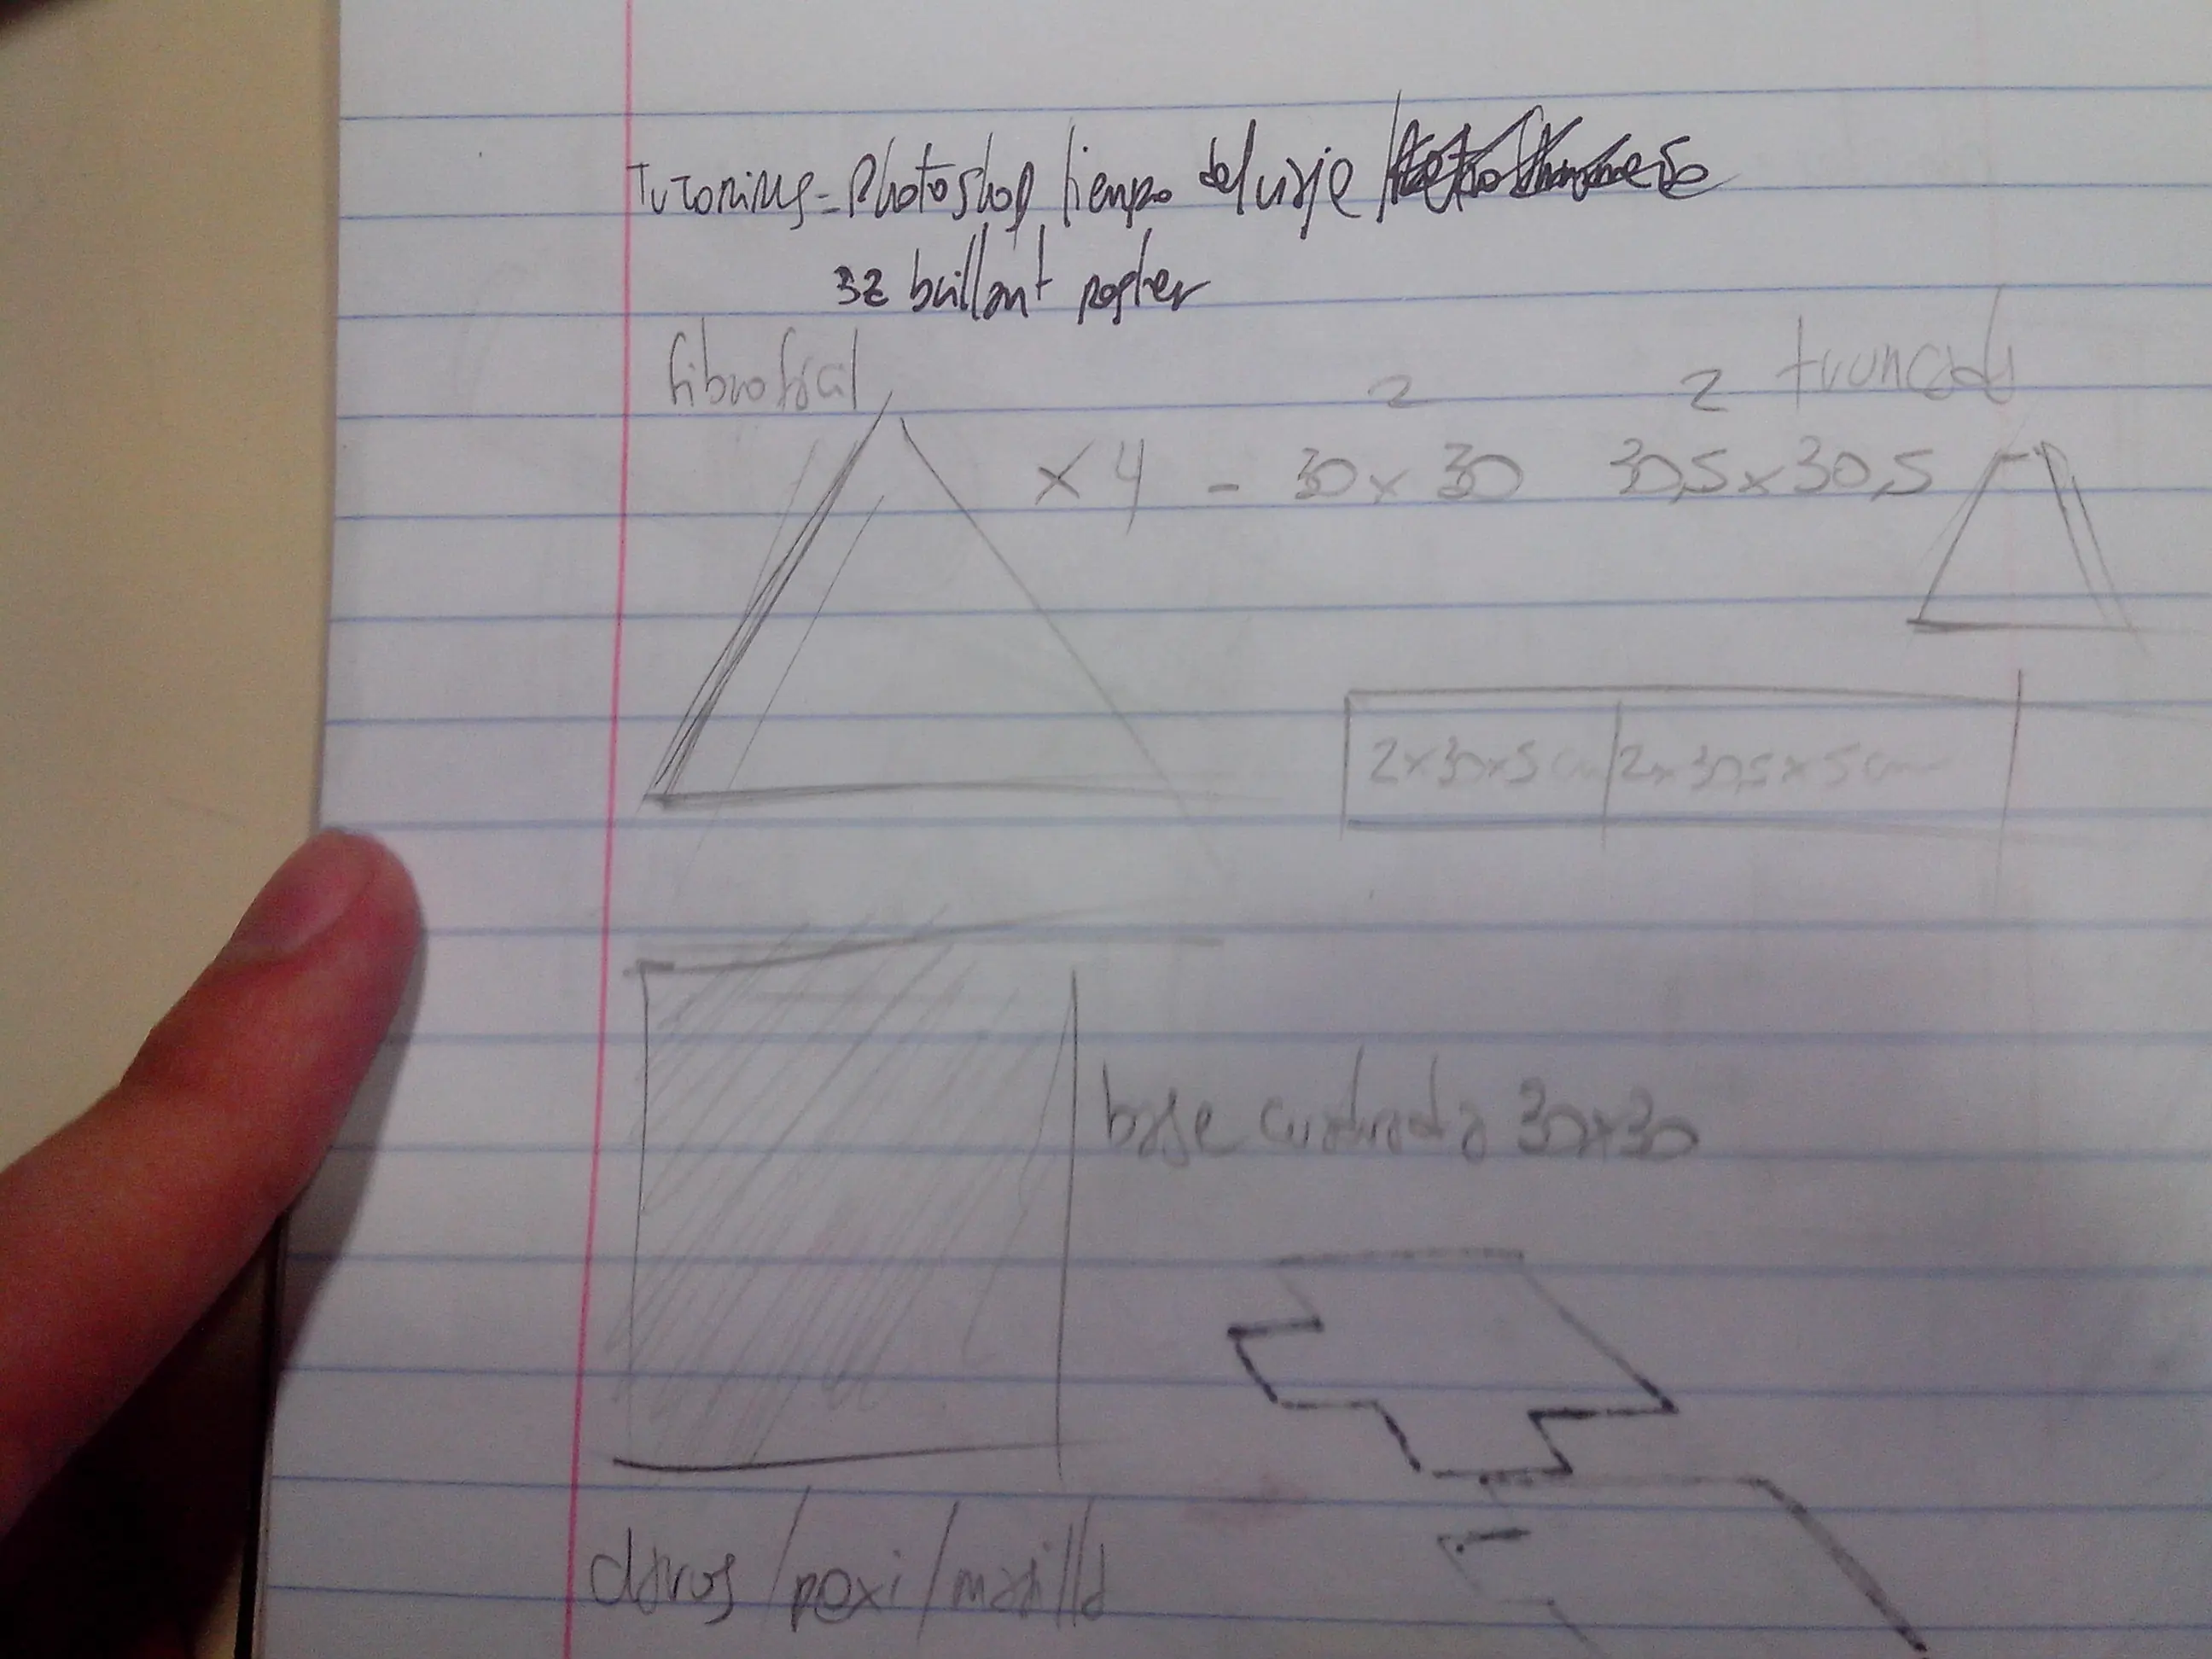 Tutorials = Photoshop tiempo del viaje /
32 brillant papier
fibrofacil
2 2 truncado
x 4 - 30 x 30 30,5 x 30,5
2x30x5 cm 2x30,5x5 cm
base cuadrada 30x30
clavos / poxi / masilla